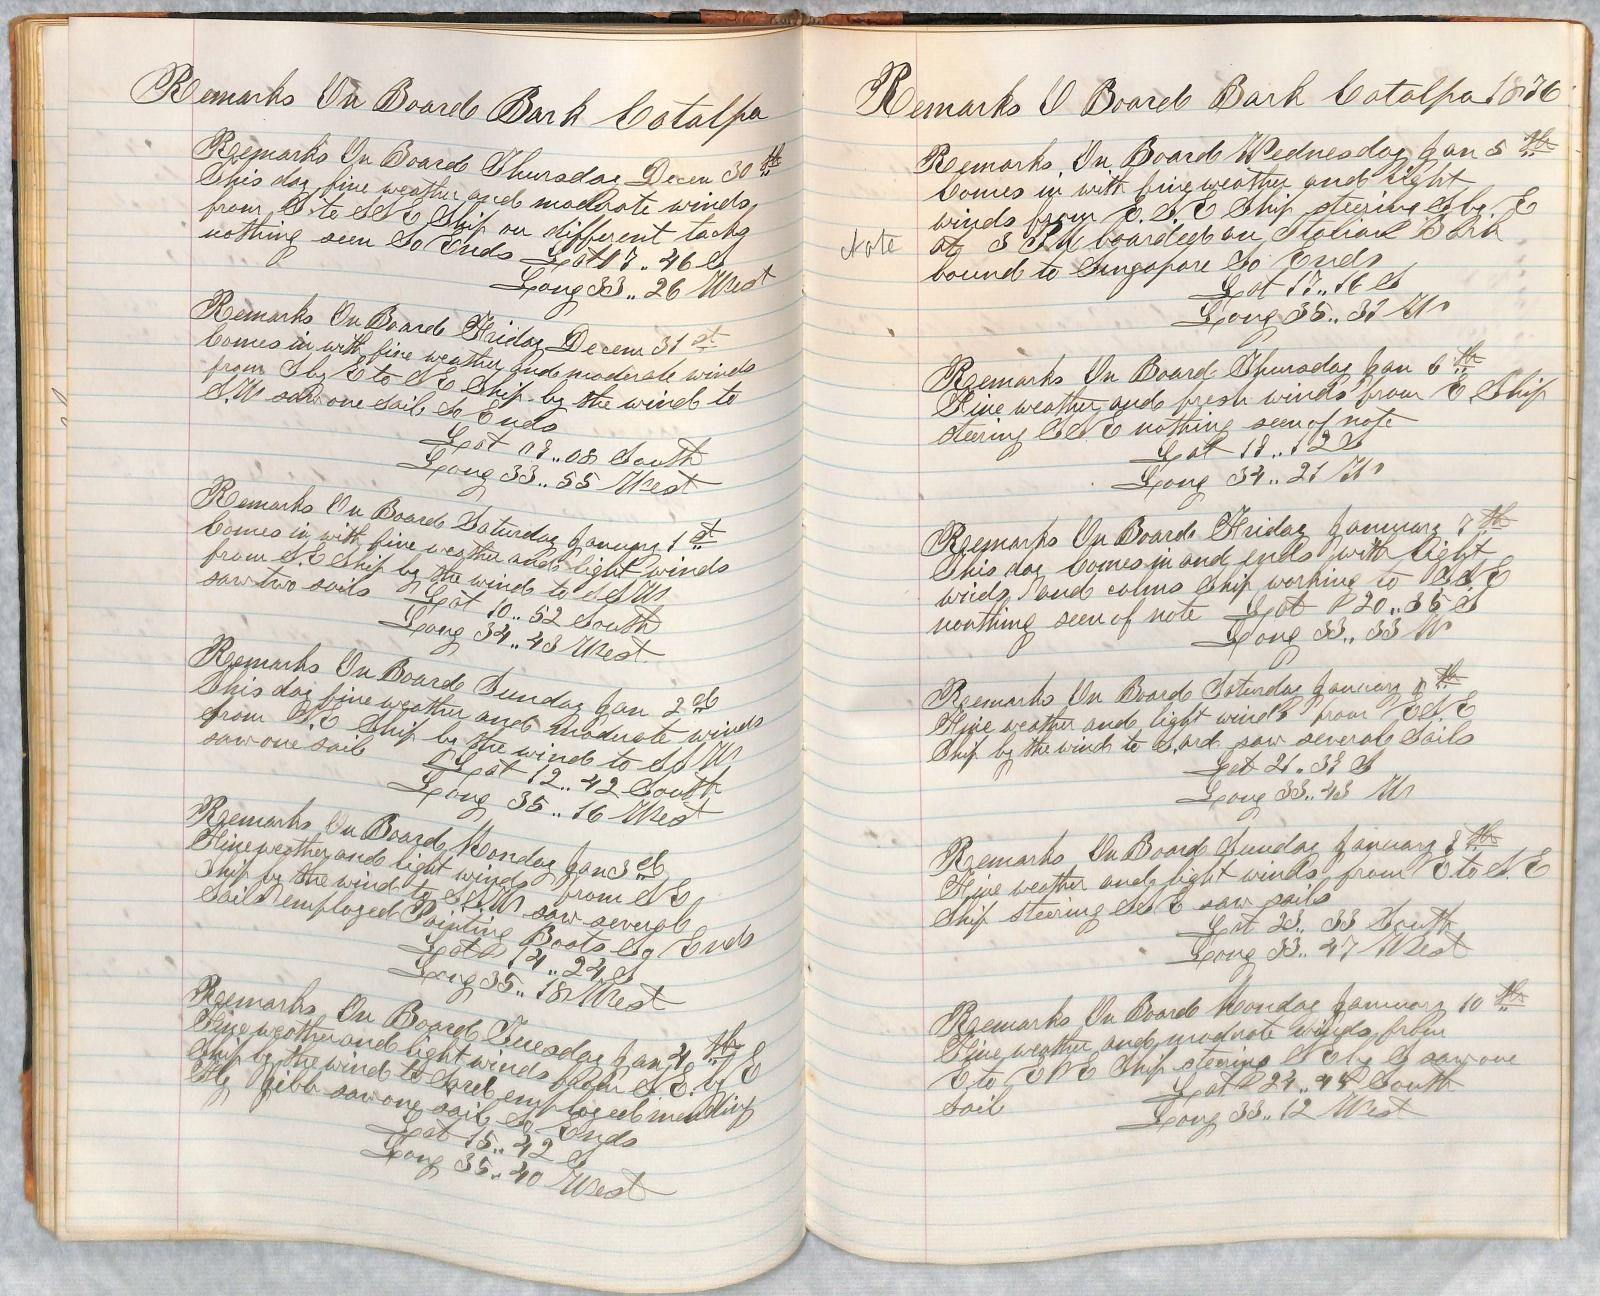 Remarks On Board Bark Catalpa
Remarks On Board Thursday Decem 30th
This day fine weather and moderate winds
from to Ship on different tacks
nothing seen So Ends Lat 17..46 S
Long 33..26 West
Remarks On Board Friday Decem 31st
Comes in with fine weather and moderate winds
from S by E to S E Ship by the wind to
S.W saw one sail So Ends
Lat 08 South
Long 33..55 West
Remarks On Board Saturday January 1st
Comes in with fine weather and light winds
from S.E Ship by the wind to S S W
saw two sails Lat 10..52 South
Long 34..43 West
Remarks On Board Sunday Jan 2d
This day fine weather and moderate winds
from S.E Ship by the wind to S S W
saw one sail Lat 12..42 South
Long 35..16 West
Remarks On Board Monday Jan 3d
Fine weather and light winds from S E
Ship by the wind to S.S.W saw several
Sails employed Painting Boats So Ends
Lat 14..24 S
Long 35..18 West
Remarks On Board Tuesday Jan 4th
Fine weather and light winds from S E. by E
Ship by the wind to Sard employed mending
Fly Jibb saw one sail So Ends
Lat 15..42 S
Long 35..40 West
Remarks O Board Bark Catalpa 1876
Remarks On Board Wednesday Jan 5th
Comes in with fine weather and light
winds from E.S.E Ship steering S by E
Note at 3 P.M boarded an Italian Bark
bound to Singapore So Ends
Lat 17..16 S
Long 35..37 W
Remarks On Board Thursday Jan 6th
Fine weather and fresh winds from E Ship
steering S S E nothing seen of note
Lat 18..12 S
Long 34..21 W
Remarks On Board Friday January 7th
This day Comes in and ends with light
winds and calms Ship working to S S E
noothing seen of note Lat 20..35 S
Long 33..33 W
Remarks On Board Saturday January th
Fine weather and light winds from
Ship by the wind to S.ard saw several Sails
Lat 21..37 S
Long 33..43 W
Remarks On Board Sunday January th
Fine weather and light winds from E to S.E
Ship steering S S E saw sails
Lat 23.. 33 South
Long 33..47 West
Remarks On Board Monday January 10th
Fine weather and modrate winds from
E to Ship steering S E by S saw one
sail Lat 24..44 South
Long 33..12 West